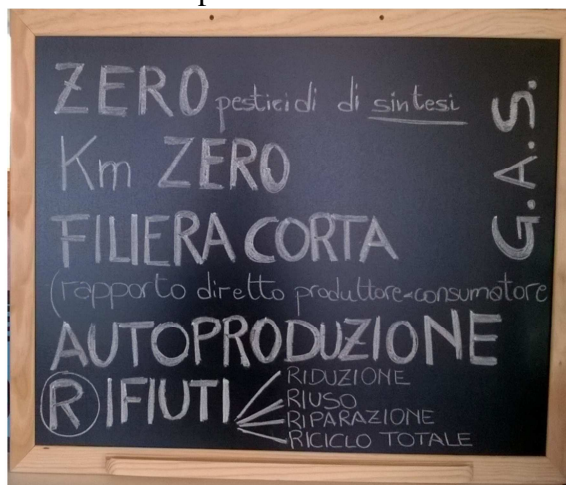 ZERO pesticidi di sintesi
Km ZERO
FILIERA CORTA
(rapporto diretto produttore-consumatore
AUTOPRODUZIONE
RIFIUTI
RIDUZIONE
RIUSO
RIPARAZIONE
RICICLO TOTALE
G.A.S.